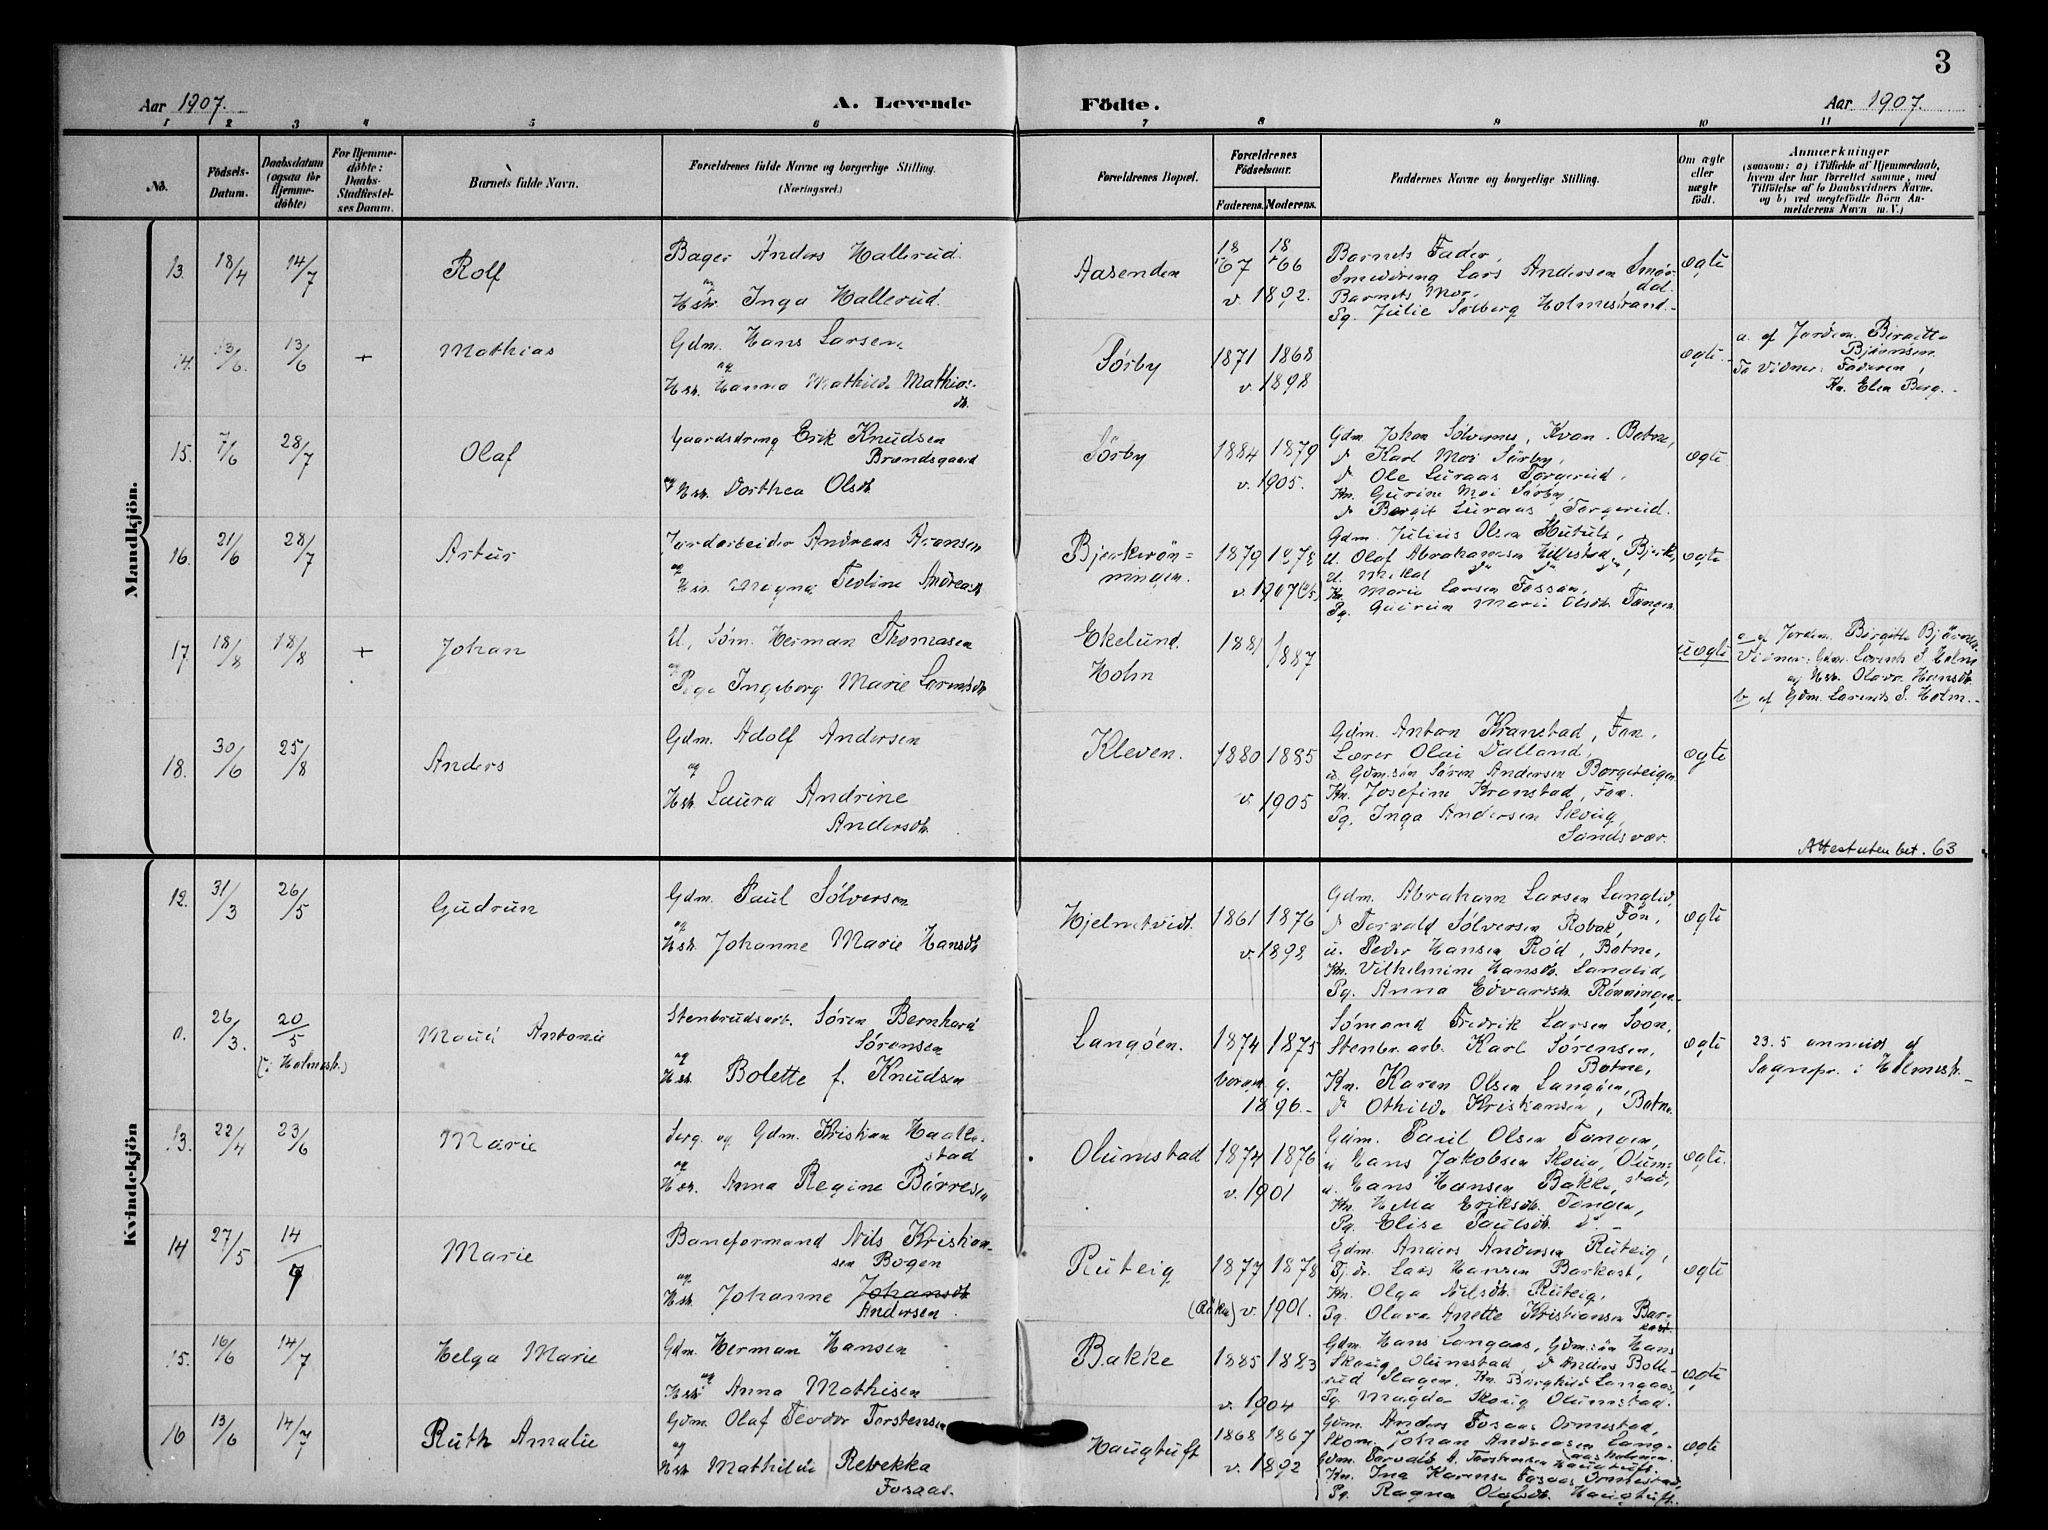 3
Aar 1907. A. Levende Födte. Aar 1907.
1 2 3 4 5 6 7 8 9 10 11
No. Födsels-Datum. Daabsdatum (ogsaa for Hjemme-döbte) For Hjemme-döbte: Daabs-Stadfæstel-ses Datum. Barnets fulde Navn. Forældrenes fulde Navne og borgerlige Stilling. (Næringsvei.) Forældrenes Bopæl. Forældrenes Födselsaar. Faderens. Moderens. Faddernes Navne og borgerlige Stilling. Om ægte eller uægte födt. Anmærkninger (saasom: a) i Tilfælde af Hjemmedaab, hvem der har forrettet samme, med Tilföielse af to Daabsvidners Navne, og b) ved uægtefödte Börn An-melderens Navn m. V.)
Mandkjön.
13. 18/4 14/7 Rolf
Bager Anders Hallerud
og
Hstr. Inga Hallerud.
Aasenden
18 67 18 66
v. 1892.
Barnets Fader,
Smeddreng Lars Andersen Smör-
dal.
Barnets Mor,
Pg. Julie Solberg Holmestrand.
ægte
14. 13/6. 13/6 + Mathias
Gdm. Hans Larsen
og
Hstr. Hanna Mathilde Mathias-
dtr.
Sørby
1871 1868
v. 1898
ægte.
a. af Jordm. Birgitte
Bjørnsen.
To Vidner: Faderen,
Kn. Elen Berg.
15. 7/6 28/7 Olaf
Gaardsdreng Erik Knudsen
Brøndsgaard
og Hstr. Dorthea Olsdtr.
Sørby
1884 1879
v. 1905.
Gdm. Johan Sølvernes, Kvan. Botne,
do Karl Moi Sörby,
do Ole Luraas Torgerud,
Kn. Gurine Moi Sørby,
do Bergit Luraas Torgerud.
ægte
16. 21/6 28/7 Artur
Jordarbeider Andreas Aronsen
og
Hstr. Magna Teoline Andreasdtr.
Bjerkerøn-
ningen.
1879 1878
v. 1907
Gdm. Julius Olsen
U. Olaf Abrahamsen Hillestad, Bjerke,
U. Mikal do do,
Kn. Marie Larsen Fossan,
Pg. Gudrun Marie Olsdtr. Tangen
ægte
17. 18/8 18/8 + Johan
U., Søm. Herman Thomasen
og
Pige Ingeborg Marie Lorentsdtr.
Ekelund.
Holm
1881 1887
uægte
a. af Jordm. Birgitte Bjørnsen.
Vidner: Gdm. Lorents S. Holm
og Hstr. Olava Hansdtr.
b. af Gdm. Lorents S. Holm.
18. 30/6 25/8 Anders
Gdm. Adolf Andersen
og
Hstr. Laura Andrine
Andersdtr.
Kleven.
1880 1885
v. 1905
Gdm. Anton Kranstad, Fon,
Lærer Olai Dalland,
u. Gdm.søn Søren Andersen Borgeteigen
Kn. Josefine Kronstad, Fon.
Pg. Inga Andersen Skoug,
Sandsvær.
ægte
Attest uten bet. 63
Kvindekjön
12. 31/3 26/5 Gudrun
Gdm. Paul Sølversen
og
Hstr. Johanne Marie Hansdtr.
Hjelmtvidt.
1861 1876
v. 1898
Gdm. Abraham Larsen Langlid,
Fon,
do Torvald Sølversen Robak,
u. Peder Hansen Rød, Botne,
Kn. Vilhelmine Hansdtr. Langlid,
Pg. Anna Edvardsdtr. Rønningen
ægte
a. 26/3. 20/5 (i Holmestr.) Maud Antonie
Stenbrudsarb. Søren Bernhard
Sørensen
og
Hstr. Bolette f. Knudsen
Langøen.
1874 1875
borgm. g.
1896.
Sømand Fredrik Larsen Soon,
Stenbr. arb. Karl Sørensen,
Botne,
Kn. Karen Olsen Langøen,
do Othilde Kristiansen, Botne
ægte
23.5 anmeldt af
Sognepr. i Holmestr.
13. 22/4 23/6 Marie
Serg. og Gdm. Kristian Haalle-
stad
og
Hstr. Anna Regine Børresen
Olumstad
1874 1876
v. 1901
Gdm. Paul Olsen Tangen,
u Hans Jakobsen Skoug, Olum-
stad,
u. Hans Hansen Bakke,
Kn. Helma Eriksdtr. Tangen,
Pg. Elise Paulsdtr. do.
ægte.
14 27/5 14/7 Marie
Baneformand Nils Kristian-
sen Bogen
og
Hstr. Johanne Johansdtr.
Andersen
Ruteig
1877 1878
(Röken) v. 1901.
Gdm. Anders Andersen Ruteig,
Tj.dr. Lars Hansen Barkost,
Kn. Olga Nilsdtr. Ruteig,
Pg. Olava Anette Kristiansen Bar-
kost.
ægte
15. 16/6 14/7 Helga Marie
Gdm. Herman Hansen
og
Hstr. Anna Mathisen
Bakke
1885 1883
v. 1904
Gdm. Hans Langaas, Gdm.søn Hans
Skoug Olumstad, do Anders Bolle-
rud Slagen, Kn. Borghild Langaas,
Pg. Magda Skoug Olumstad.
ægte
16 13/6 14/7 Ruth Amalie
Gdm. Olaf Teodor Torstensen
og
Hstr. Mathilde Rebekka
Fosaas.
Haugtuft
1868 1867
v. 1892
Gdm. Anders Fosaas Ormestad,
Skom. Johan Andreasen Lang-
aas Holmen.
Gdm. Torvald T. Torstensen Haugtuft.
Kn. Ina Karense Fosaas Ormestad,
Pg. Ragna Olafsdtr. Haugtuft.
ægte